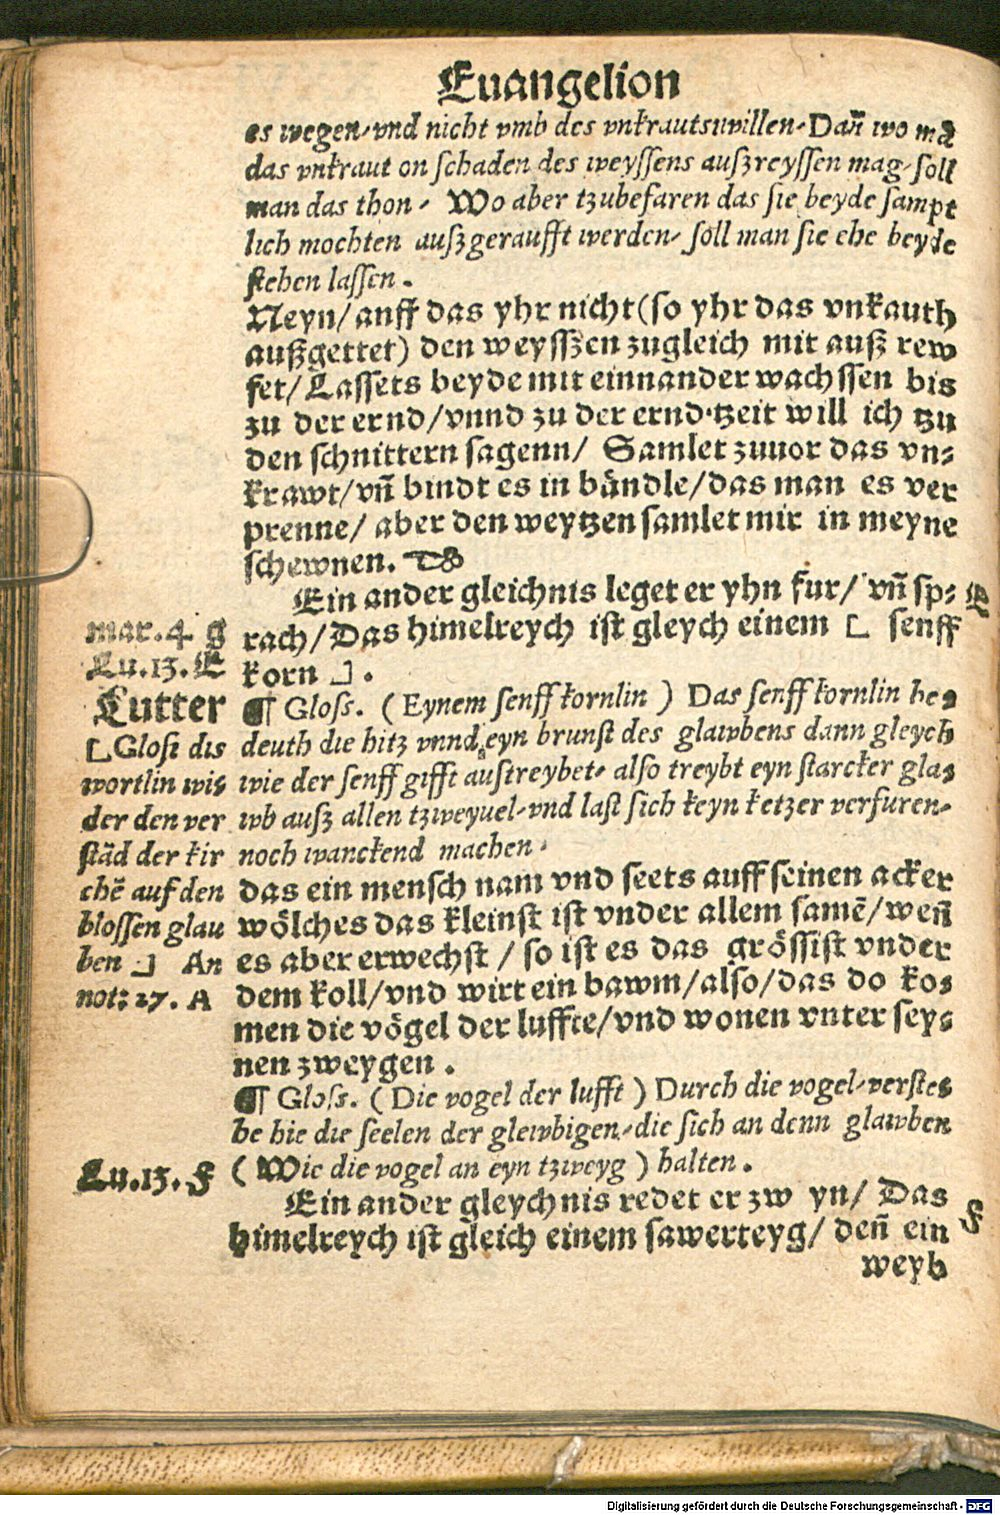 Euangelion
es wegen/vnd nicht vmb des vnkrautsuuillen/Dañ wo mā
das vnkraut on schaden des weyssens außreyssen mag/soll
man das thon/ Wo aber tzubefaren das sie beyde sampt
lich mochten außgeraufft werden/ soll man sie ehe beyde
stehen lassen.
Neyn/anff das yhr nicht(so yhr das vnkauth
außgettet) den weysszen zugleich mit auß rew
fet/Lassets beyde mit einnander wachssen bis
zu der ernd/vnnd zu der ernd·tzeit will ich tzu
den schnittern sagenn/ Samlet zuuor das vn-
krawt/vñ bindt es in bändle/das man es ver
prenne/ aber den weytzen samlet mir in meyne
schewnen.
Ein ander gleichnis leget er yhn fur/ vñ sp-
E
rach/Das himelreych ist gleych einem [ senff
korn ].
mar.4. g
Lu.13. E
Lutter
[Glosi dis
wortlin wi-
der den ver
städ der kir
chē auf den
blossen glau
ben ] An
not: 27. A
¶ Gloss. (Eynem senff kornlin) Das senff kornlin be-
deuth die hitz vnnd eyn brunst des glawbens dann gleych
wie der senff gifft austreybet/ also treybt eyn starcker gla-
wb auß allen tzweyuel/vnd last sich keyn ketzer verfuren/
noch wanckend machen.
das ein mensch nam vnd seets auff seinen acker
wölches das kleinst ist vnder allem samē/weñ
es aber erwechst / so ist es das grössist vnder
dem koll/vnd wirt ein bawm/also/das do ko-
men die vögel der luffte/vnd wonen vnter sey-
nen zweygen.
¶ Gloss. (Die vogel der lufft) Durch die vogel/verste-
he hie die seelen der glewbigen/die sich an denn glawben
(Wie die vogel an eyn tzweyg) halten.
Lu.13. F
Ein ander gleychnis redet er zw yn/ Das
F
himelreych ist gleich einem sawerteyg/ deñ ein
weyb
Digitalisierung gefördert durch die Deutsche Forschungsgemeinschaft - DFG